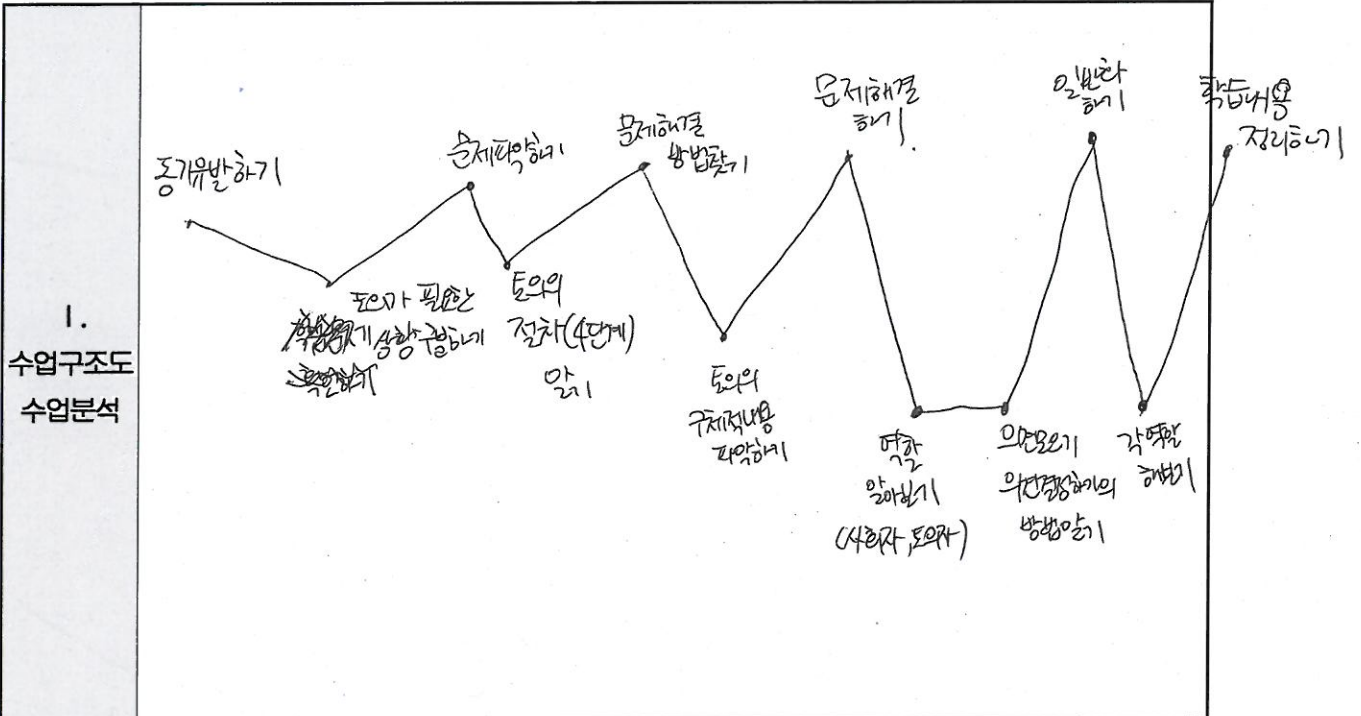 I.
수업구조도
수업분석
동기유발하기
토의가 필요한
상황 구분하기
문제파악하기
토의의
절차(4단계)
알기
문제해결
방법찾기
토의의
구체적내용
파악하기
문제해결
하기
역할
알아보기
(사회자,토의자)
의견모으기
의사결정하기의
방법알기
일반화
하기
각 역할
해보기
학습내용
정리하기